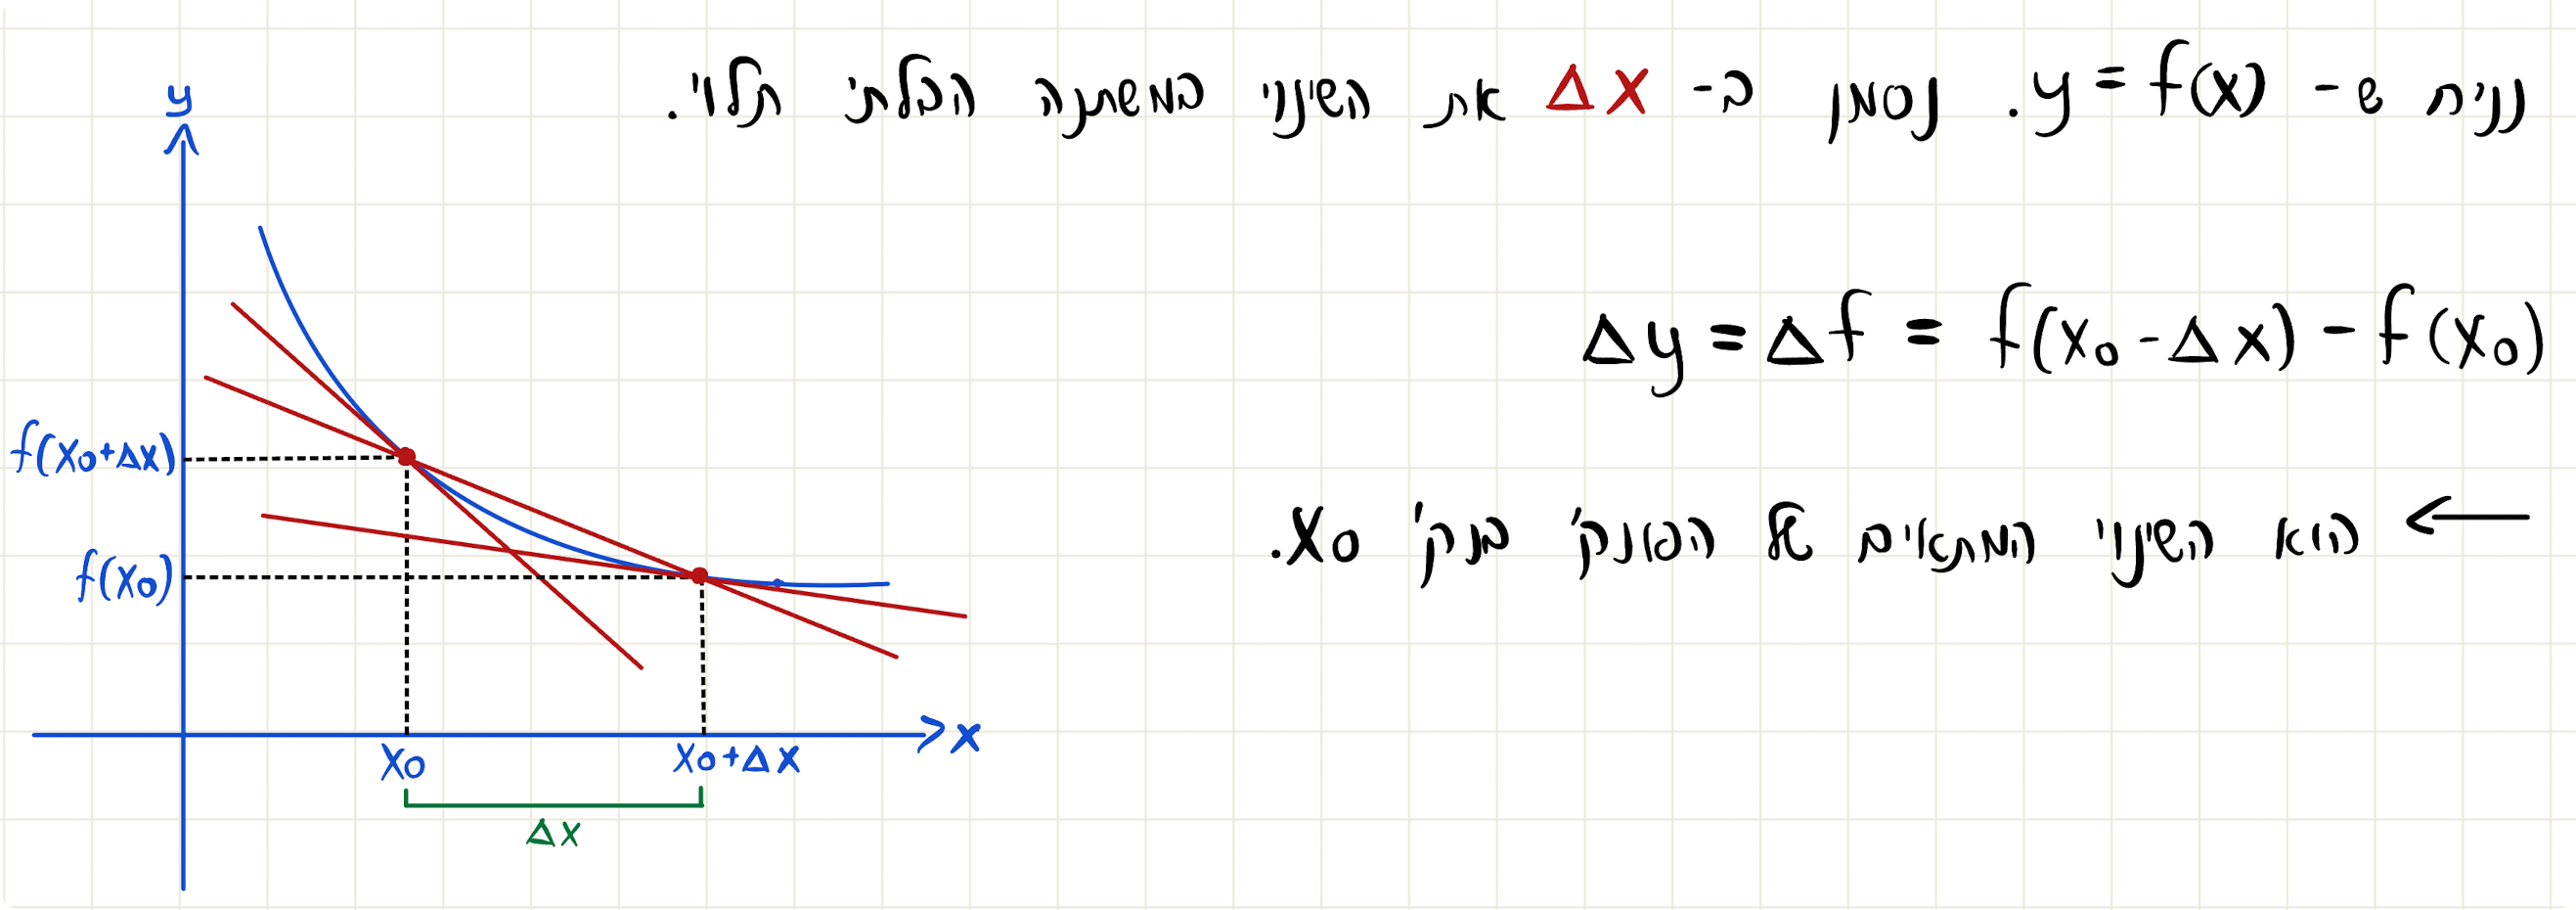 נניח ש- y = f(x). נסמן ב- Δx את השינוי במשתנה הבלתי תלוי.
Δy = Δf = f(x₀ - Δx) - f(x₀)
← הוא השינוי המתאים של הפונק' בנק' x₀.
y
f(x₀+Δx)
f(x₀)
x
x₀
x₀+Δx
Δx